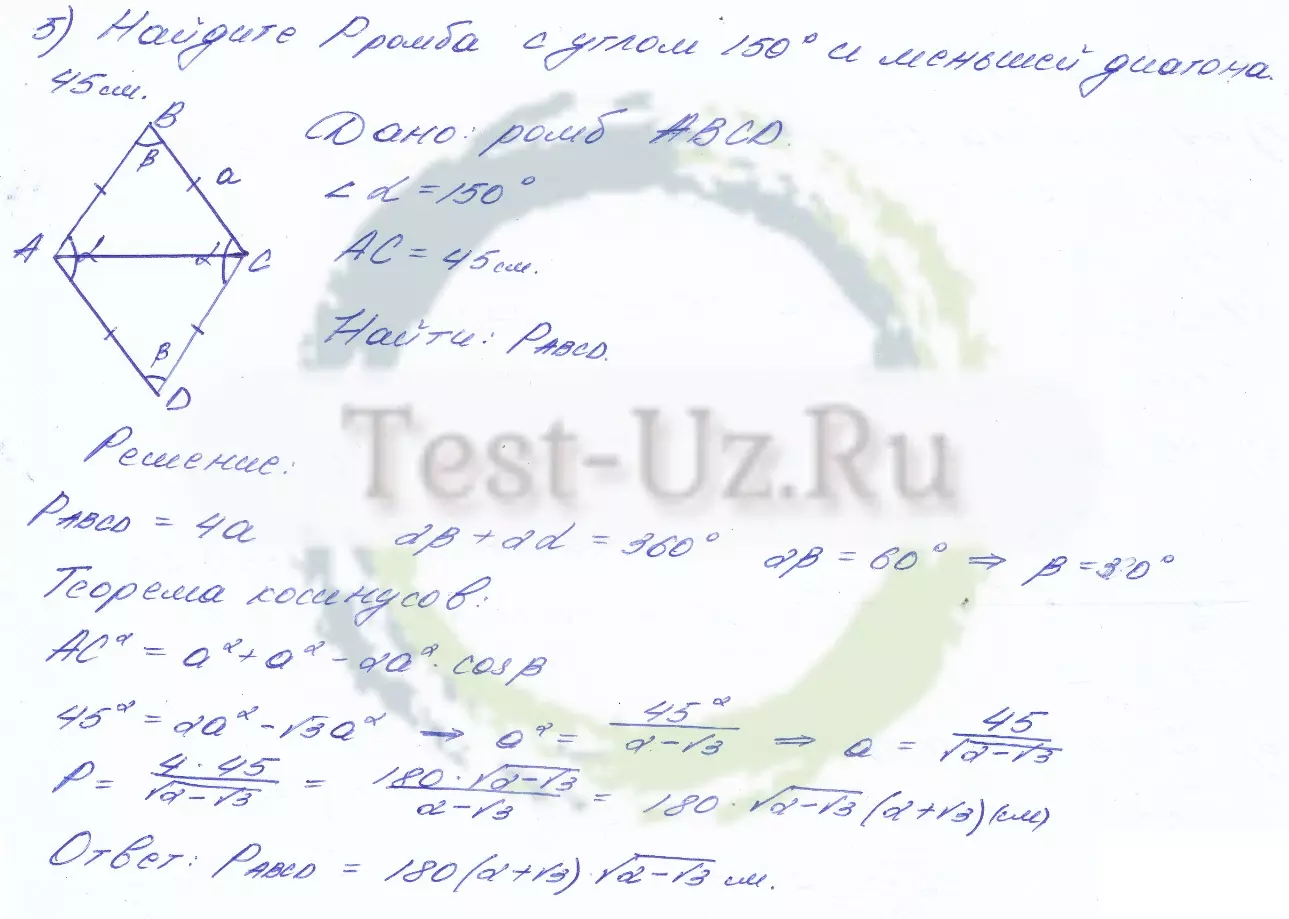 5) Найдите P ромба с углом 150° и меньшей диагона.
45 см.
B
β
a
A α α C
β
D
Дано: ромб ABCD.
∠α = 150°
AC = 45 см.
Найти: P_ABCD.
Test-Uz.Ru
Решение:
P_ABCD = 4a 2β + 2α = 360° 2β = 60° ⇒ β = 30°
Теорема косинусов:
AC² = a² + a² - 2a² · cos β
45² = 2a² - √3a² → a² = 45²/(2-√3) ⇒ a = 45/√(2-√3)
P = 4·45/√(2-√3) = 180·√(2-√3)/(2-√3) = 180·√(2-√3)(2+√3)(см)
Ответ: P_ABCD = 180(2+√3)·√(2-√3) см.